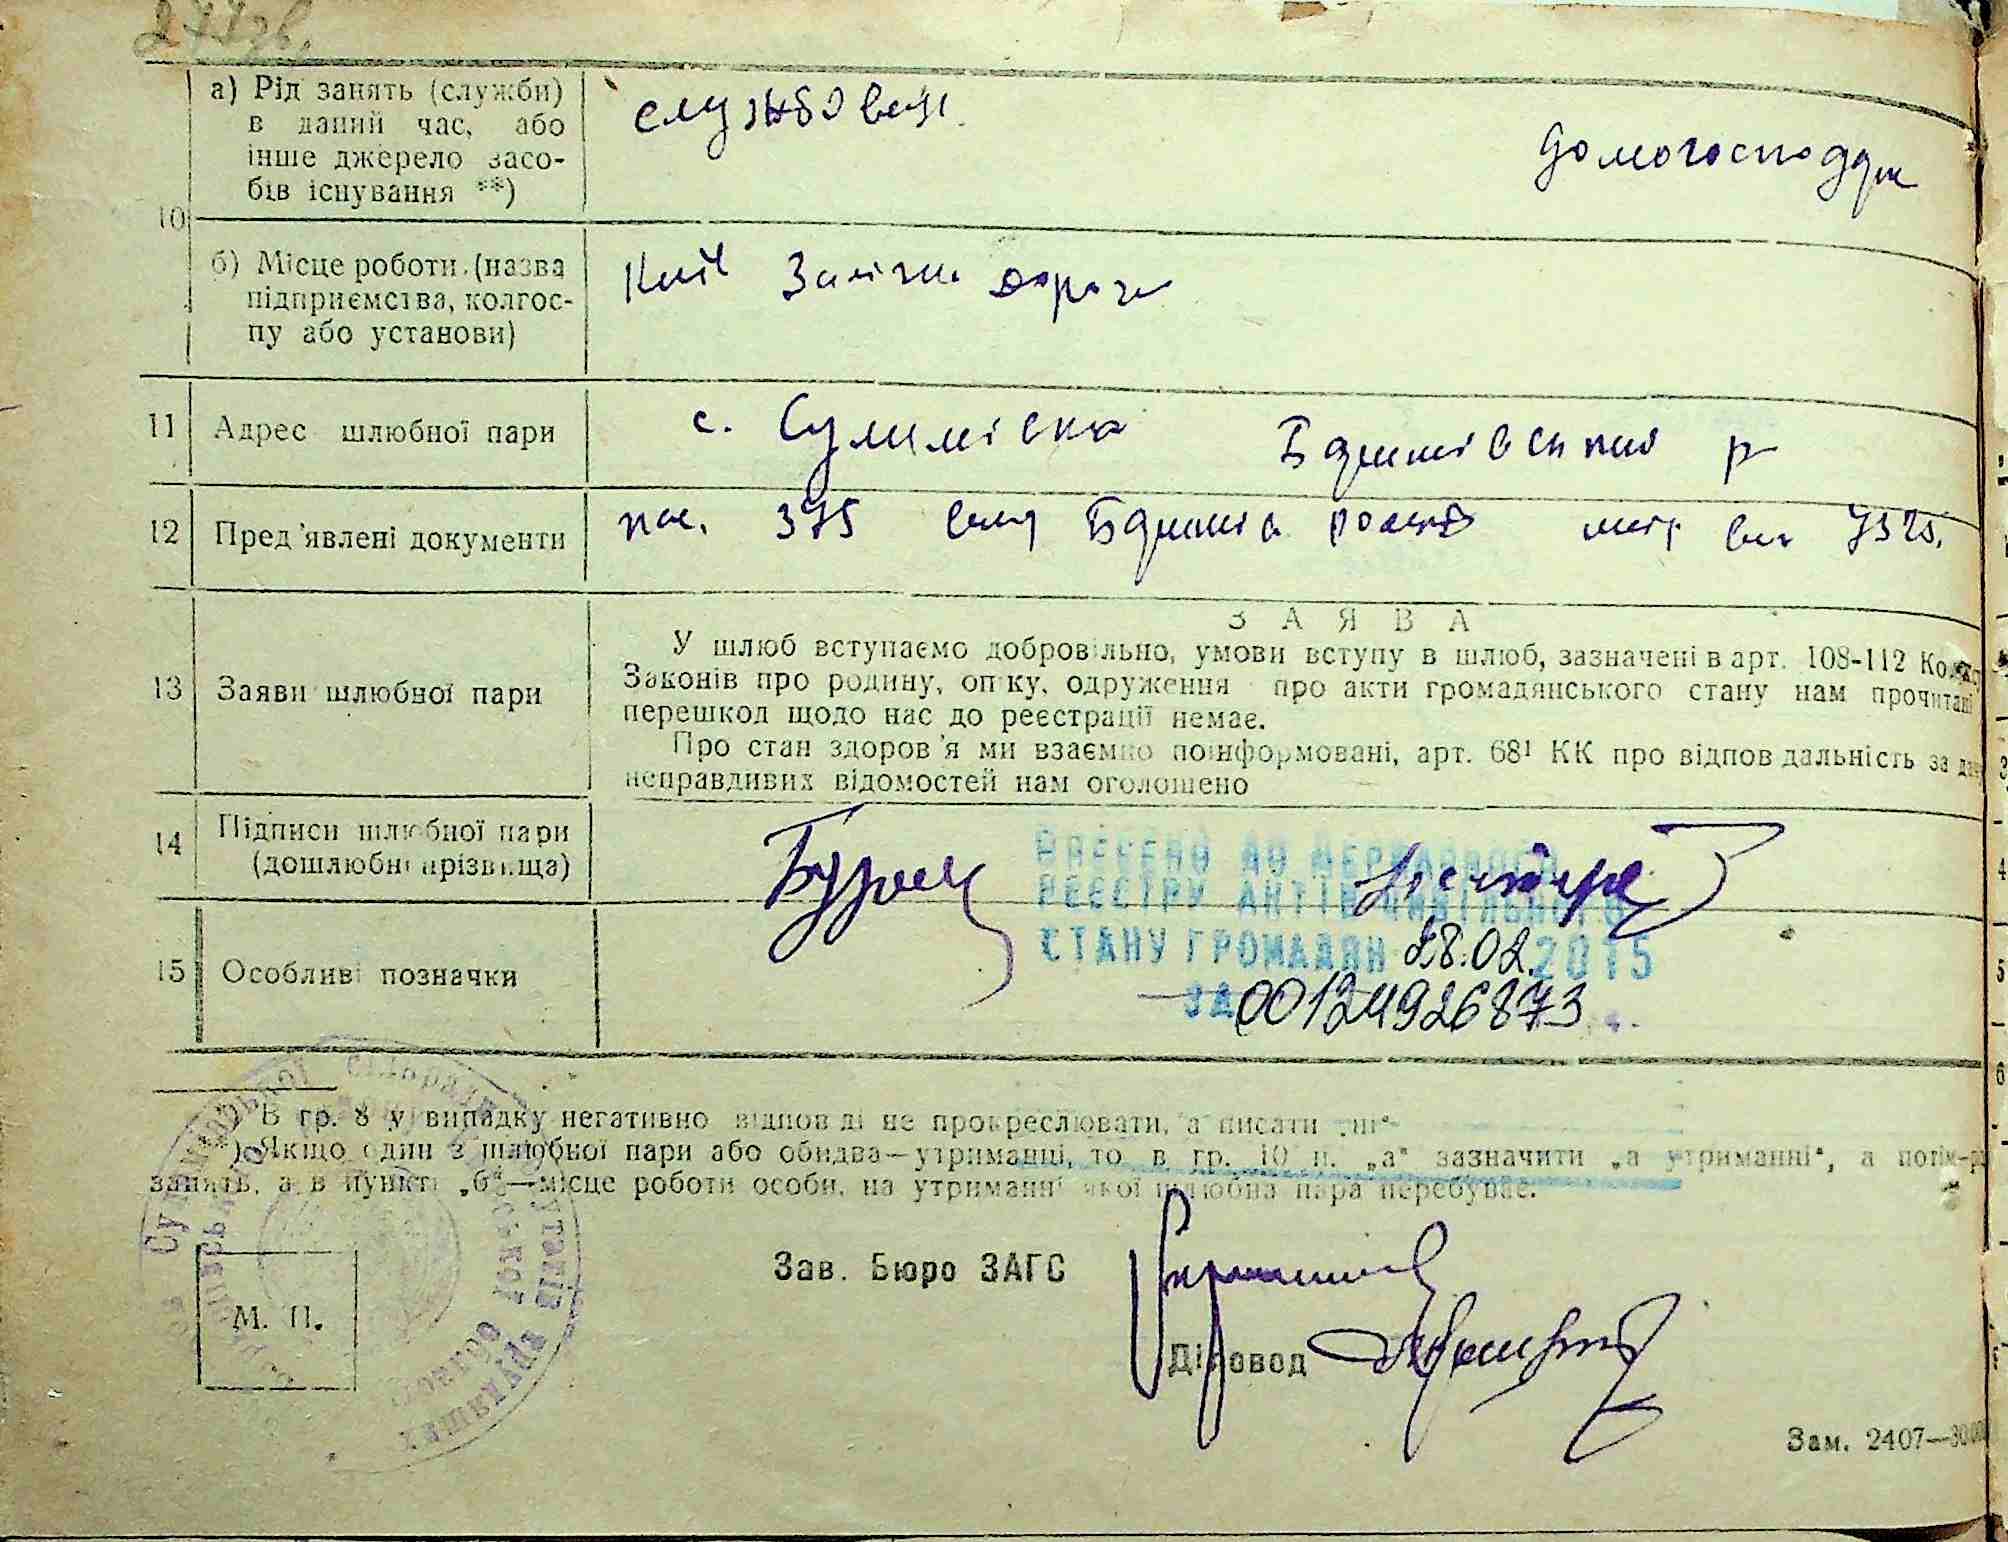 а) Рід занять (служби)
в даний час, або
інше джерело засо-
бів існування **)
службовець
домогосподарк
10
б) Місце роботи (назва
підприємства, колгос-
пу або установи)
Київ Заліжн дорога
11 Адрес шлюбної пари
с. Сулимівка Баришівський р
12 Пред'явлені документи
пас. 375 вид Баришів
13 Заяви шлюбної пари
ЗАЯВА
У шлюб вступаємо добровільно, умови вступу в шлюб, зазначені в арт. 108-112
Законів про родину, опіку, одруження про акти громадянського стану нам прочитані
перешкод щодо нас до реєстрації немає.
Про стан здоров'я ми взаємно поінформовані, арт. 68¹ КК про відповідальність за
неправдивих відомостей нам оголошено
14 Підписи шлюбної пари
(дошлюбні прізвища)
ВНЕСЕНО ДО ДЕРЖАВНОГО
РЕЄСТРУ АКТІВ ЦИВІЛЬНОГО
СТАНУ ГРОМАДЯН 28.02.2015
ЗА 00124926873
15 Особливі позначки
*) В гр. 8 у випадку негативно відповіді не прокреслювати, а писати „ні“
**) Якщо один з шлюбної пари або обидва—утриманці, то в гр. 10 п. „а“ зазначити „а утриманні“, а потім
занять, а в пункті „б“—місце роботи особи, на утриманні якої шлюбна пара перебуває.
Зав. Бюро ЗАГС
М. П.
Діловод
Зам. 2407—